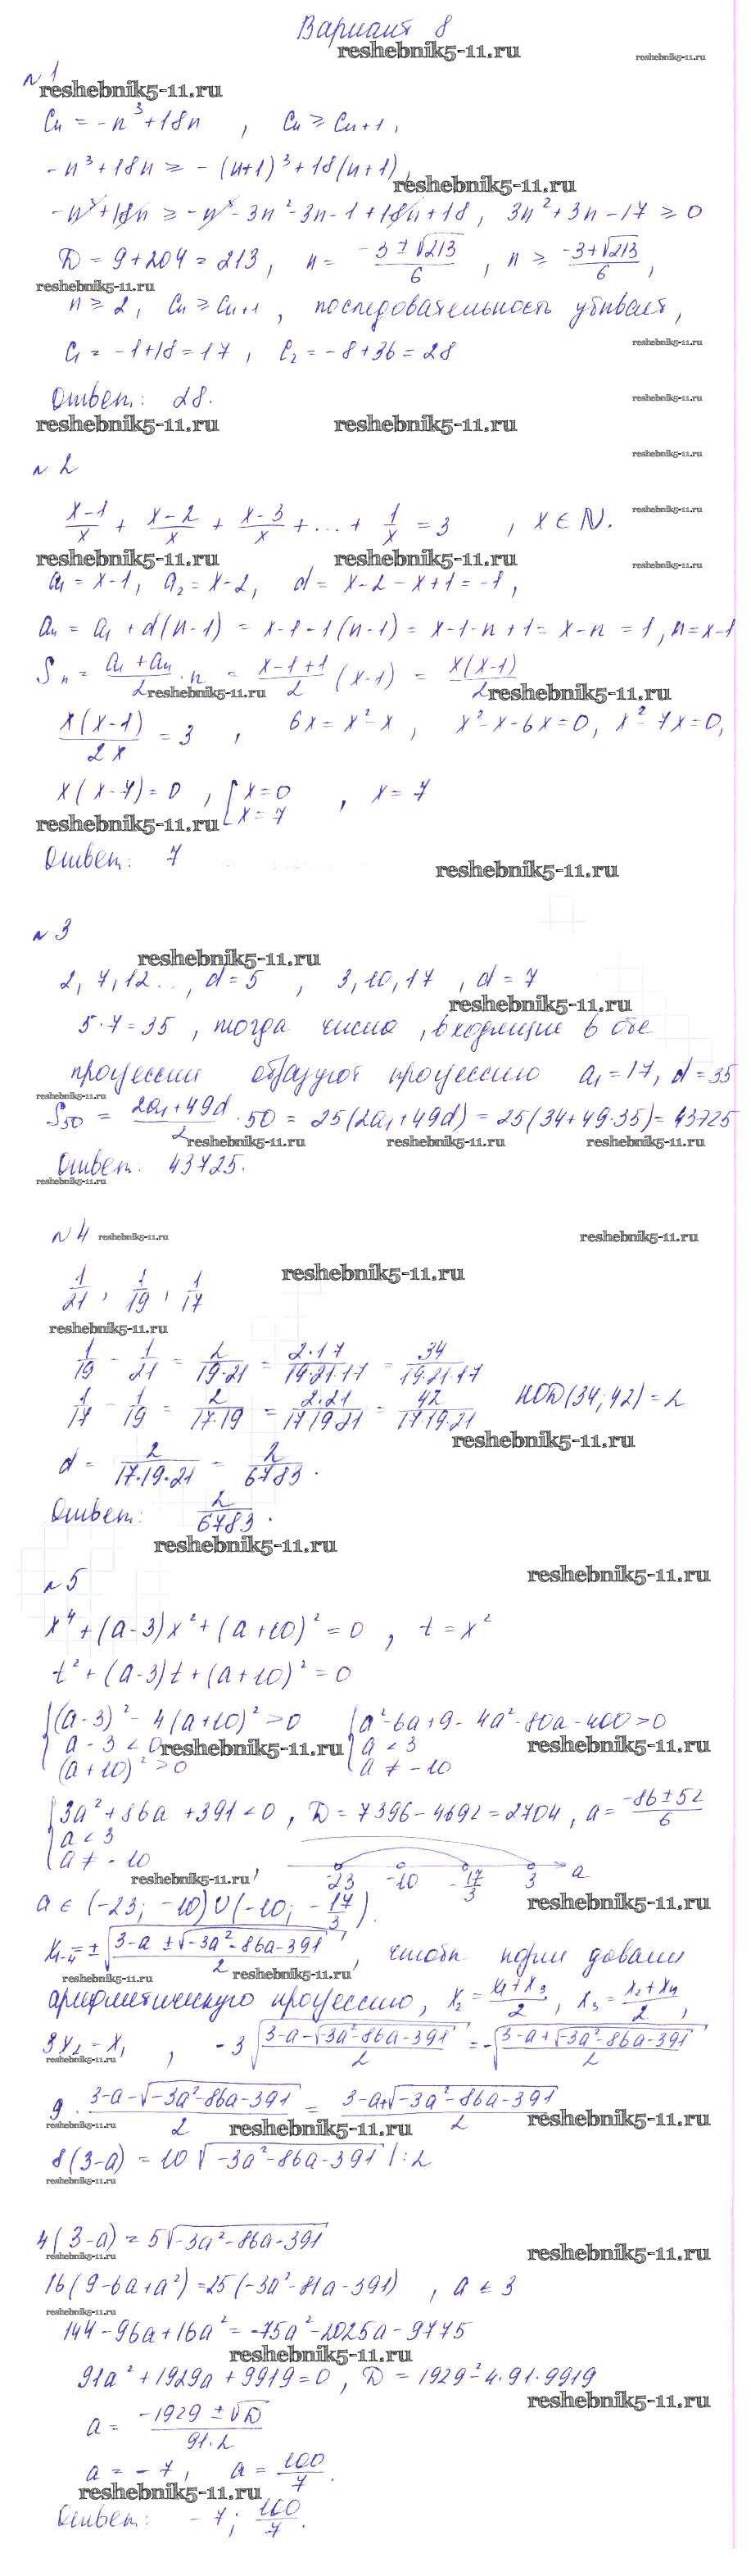 Вариант 8
reshebnik5-11.ru
reshebnik5-11.ru
№1
reshebnik5-11.ru
Cn = -n³+18n , Cn ≥ Cn+1,
-n³+18n ≥ -(n+1)³+18(n+1),
reshebnik5-11.ru
-n³+18n ≥ -n³-3n²-3n-1+18n+18, 3n²+3n-17 ≥ 0
D = 9+204 = 213, n = (-3±√213)/6 , n ≥ (-3+√213)/6 ,
reshebnik5-11.ru
n ≥ 2, Cn ≥ Cn+1 , последовательность убывает,
reshebnik5-11.ru
C1 = -1+18 = 17, C2 = -8+36 = 28
Ответ: 28.
reshebnik5-11.ru
reshebnik5-11.ru reshebnik5-11.ru
№2
reshebnik5-11.ru
(x-1)/x + (x-2)/x + (x-3)/x + ... + 1/x = 3 , x ∈ N.
reshebnik5-11.ru
reshebnik5-11.ru reshebnik5-11.ru
a1 = x-1, a2 = x-2, d = x-2-x+1 = -1,
an = a1 + d(n-1) = x-1-1(n-1) = x-1-n+1 = x-n = 1, n = x-1
Sn = (a1+an)/2 · n = (x-1+1)/2 (x-1) = x(x-1)/2
reshebnik5-11.ru reshebnik5-11.ru
x(x-1)/2x = 3 , 6x = x²-x , x²-x-6x=0, x²-7x=0,
x(x-7)=0 , [x=0 x=7 , x=7
reshebnik5-11.ru
Ответ: 7
reshebnik5-11.ru
№3
reshebnik5-11.ru
2, 7, 12..., d=5 , 3, 10, 17 , d=7
reshebnik5-11.ru
5·7=35 , тогда числа, входящие в обе
прогрессии образуют прогрессию a1=17, d=35
reshebnik5-11.ru
S50 = (2a1+49d)/2 · 50 = 25(2a1+49d) = 25(34+49·35) = 43725
reshebnik5-11.ru reshebnik5-11.ru reshebnik5-11.ru
Ответ. 43725.
reshebnik5-11.ru
№4 reshebnik5-11.ru reshebnik5-11.ru
reshebnik5-11.ru
1/21, 1/19, 1/17
reshebnik5-11.ru
1/19 - 1/21 = 2/(19·21) = 2·17/(19·21·17) = 34/(19·21·17)
1/17 - 1/19 = 2/(17·19) = 2·21/(17·19·21) = 42/(17·19·21) НОД(34;42)=2
reshebnik5-11.ru
d = 2/(17·19·21) = 2/6783.
Ответ: 2/6783.
reshebnik5-11.ru
reshebnik5-11.ru
№5
x⁴+(a-3)x²+(a+10)²=0 , t=x²
t²+(a-3)t+(a+10)²=0
{(a-3)²-4(a+10)²>0 {a²-6a+9-4a²-80a-400>0
a-3<0 a<3
reshebnik5-11.ru reshebnik5-11.ru
(a+10)²>0 a≠-10
{3a²+86a+391<0, D=7396-4692=2704, a=(-86±52)/6
a<3
a≠-10
reshebnik5-11.ru
-23 -10 -17/3 3 a
a ∈ (-23; -10)∪(-10; -17/3).
reshebnik5-11.ru
x1-4 = ±√((3-a±√(-3a²-86a-391))/2), чтобы корни давали
reshebnik5-11.ru reshebnik5-11.ru
арифметическую прогрессию, x2=(x1+x3)/2, x3=(x2+x4)/2,
3x2=x1 , -3√((3-a-√(-3a²-86a-391))/2) = -√((3-a+√(-3a²-86a-391))/2)
reshebnik5-11.ru
9·(3-a-√(-3a²-86a-391))/2 = (3-a+√(-3a²-86a-391))/2
reshebnik5-11.ru reshebnik5-11.ru
8(3-a) = 10√(-3a²-86a-391) |:2
reshebnik5-11.ru
4(3-a) = 5√(-3a²-86a-391)
reshebnik5-11.ru reshebnik5-11.ru
16(9-6a+a²)=25(-3a²-81a-391) , a<3
reshebnik5-11.ru
144-96a+16a²=-75a²-2025a-9775
reshebnik5-11.ru
91a²+1929a+9919=0, D=1929²-4·91·9919
reshebnik5-11.ru
a = (-1929±√D)/(91·2)
a = -7, a = 100/7.
reshebnik5-11.ru
Ответ: -7; 100/7.